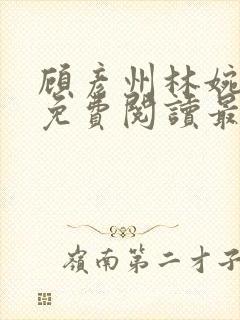 顾彦州林婉
免費閱讀最
嶺南第二才子